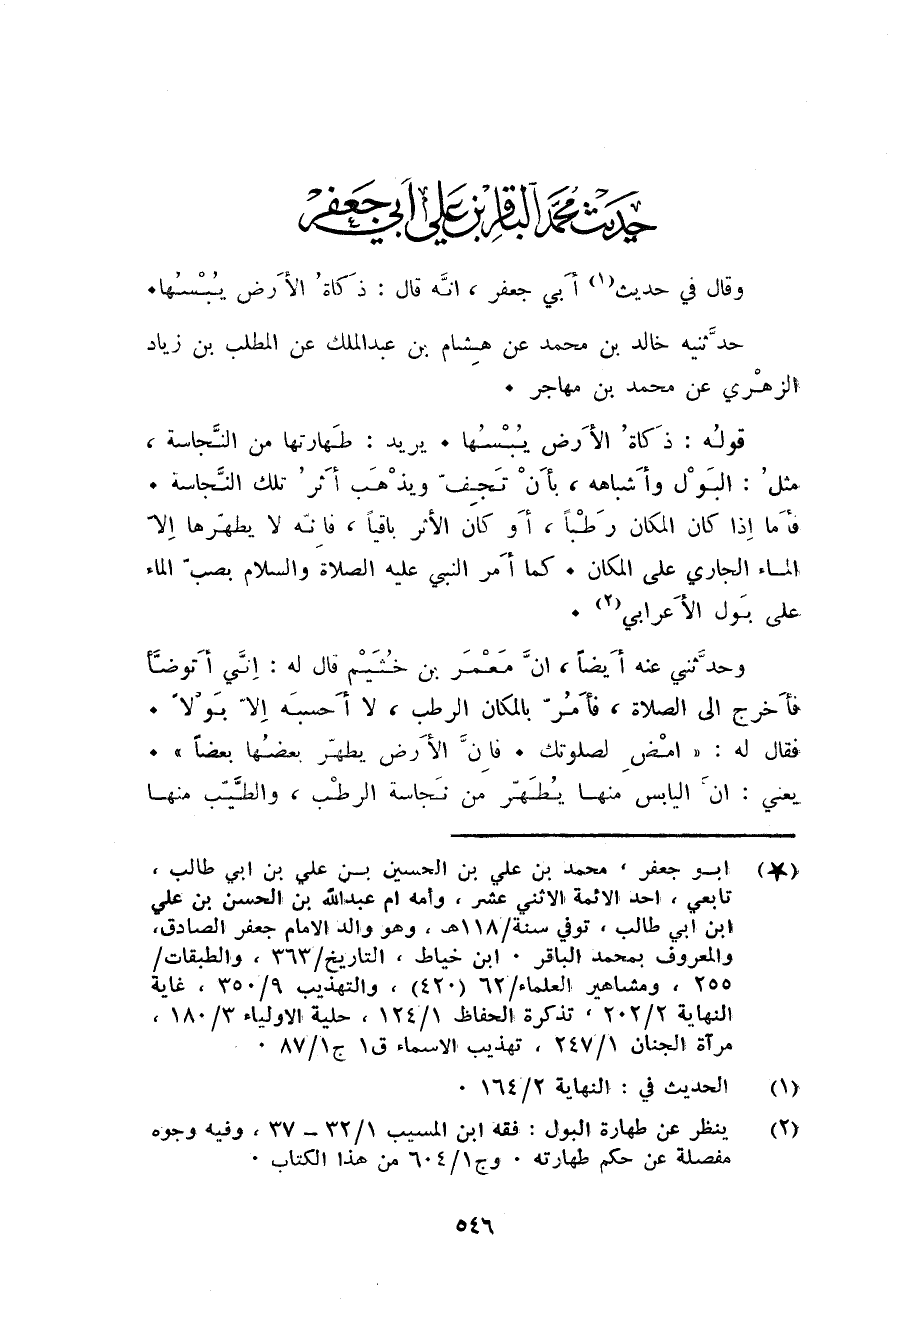 حديث محمد الباقر بن علي أبي جعفر
وقال في حديث(١) أَبي جعفر ، انَّه قال : ذَكَاةُ الأَرض يُبْسُها ٠
حدَّثنيه خالد بن محمد عن هِشام بن عبدالملك عن المطلب بن زياد
الزهْري عن محمد بن مهاجر ٠
قولُه : ذَكَاةُ الأَرض يُبْسُها ٠ يريد : طَهارتها من النَّجاسة ،
مثلُ : البَوْل وأَشباهه ، بأَنْ تَجِفّ ويذْهَب أَثرُ تلك النَّجاسة ٠
فأَما إِذا كان المكان رَطْباً ، أَو كان الأثر باقياً ، فانِه لا يطهّرها إلاّ
الماء الجاري على المكان ٠ كما أَمر النبي عليه الصلاة والسلام بصبّ الماء
على بَول الأَعرابي(٢) ٠
وحدَّثني عنه أَيضاً ، انَّ مَعْمَر بن خُثَيْم قال له : إنَّي أَتوضَّأ
فأَخرج الى الصلاة ، فأَمُرّ بالمكان الرطب ، لا أَحسبَه إلاّ بَوْلاً ٠
فقال له : « امْضِ لصلوتك ٠ فانَِّ الأَرض يطهّر بعضُها بعضاً » ٠
يعني : انَ اليابس منها يُطَهّر من نَجاسة الرطْب ، والطَّيّب منها
(★) ابو جعفر ، محمد بن علي بن الحسين بن علي بن ابي طالب ،
تابعي ، احد الائمة الاثني عشر ، وأمه ام عبدالله بن الحسن بن علي
ابن ابي طالب ، توفي سنة/١١٨هـ ، وهو والد الامام جعفر الصادق،
والمعروف بمحمد الباقر ٠ ابن خياط ، التاريخ/٣٦٣ ، والطبقات/
٢٥٥ ، ومشاهير العلماء/٦٢ (٤٢٠) ، والتهذيب ٣٥٠/٩ ، غاية
النهاية ٢٠٢/٢ ، تذكرة الحفاظ ١٢٤/١ ، حلية الاولياء ١٨٠/٣ ،
مرآة الجنان ٢٤٧/١ ، تهذيب الاسماء ق١ ج٨٧/١ ٠
(١) الحديث في : النهاية ١٦٤/٢ ٠
(٢) ينظر عن طهارة البول : فقه ابن المسيب ٣٢/١ ـ ٣٧ ، وفيه وجوه
مفصلة عن حكم طهارته ٠ وج٦٠٤/١ من هذا الكتاب ٠
٥٤٦